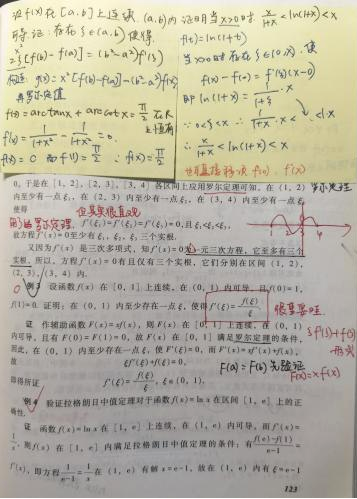 设f(x)在[a,b]上连续 (a,b)内
可导 证:存在ξ∈(a,b)使得
2ξ[f(b)-f(a)]=(b²-a²)f'(ξ)
构造 g(x)=x²[f(b)-f(a)]-(b²-a²)f(x)
再罗尔定理
f(x)=arctanx+arccotx=π/2 在R上恒有
f'(x)=1/(1+x²)-1/(1+x²)=0.
f(x)=C 而f(1)=π/2 ∴f(x)=π/2
证明当x>0时 x/(1+x)<ln(1+x)<x
f(t)=ln(1+t)
当x>0时存在ξ∈(0,x)使
f(x)-f(0)=f'(ξ)(x-0)
即ln(1+x)=1/(1+ξ)·x
∵0<ξ<x ∴1/(1+x)·x<…<1·x
∴x/(1+x)<ln(1+x)<x
f(0), f'(x)
0,于是在[1,2],[2,3],[3,4]各区间上应用罗尔定理可知,在(1,2)
内至少有一点ξ₁,在(2,3)内至少有一点ξ₂,在(3,4)内至少有一点ξ₃
使得
f'(ξ₁)=f'(ξ₂)=f'(ξ₃)=0,且ξ₁<ξ₂<ξ₃,
故方程f'(x)=0至少有ξ₁,ξ₂,ξ₃三个实根.
又因为f'(x)是三次多项式,知f'(x)=0为一元三次方程,它至多有三个
实根,所以,方程f'(x)=0有且仅有三个实根,它们分别在区间(1,2),
(2,3),(3,4)内.
例3 设函数f(x)在[0,1]上连续,在(0,1)内可导,且f(0)=1,
f(1)=0.证明:在(0,1)内至少存在一点ξ,使得f'(ξ)=-f(ξ)/ξ
很重要哇
证 作辅助函数F(x)=xf(x),则F(x)在[0,1]上连续,在(0,1)
内可导,且有F(0)=F(1)=0,故F(x)在[0,1]满足罗尔定理的条件,
因此,在(0,1)内至少存在一点ξ,使F'(ξ)=0,而F'(x)=xf'(x)+f(x),
故 ξf'(ξ)+f(ξ)=0,
F(a)=F(b)先验证
F(x)=xf(x)
即得所证 f'(ξ)=-f(ξ)/ξ,ξ∈(0,1).
例4 验证拉格朗日中值定理对于函数f(x)=lnx在区间[1,e]上的正
确性.
证 函数f(x)=lnx在[1,e]上连续,在(1,e)内可导,而f'(x)=
1/x,则f(x)在[1,e]内满足拉格朗日中值定理的条件;有(f(e)-f(1))/(e-1)=
f'(x),即方程1/(e-1)=1/x在(1,e)有解x=e-1,故在(1,e)内有ξ=e-1
123